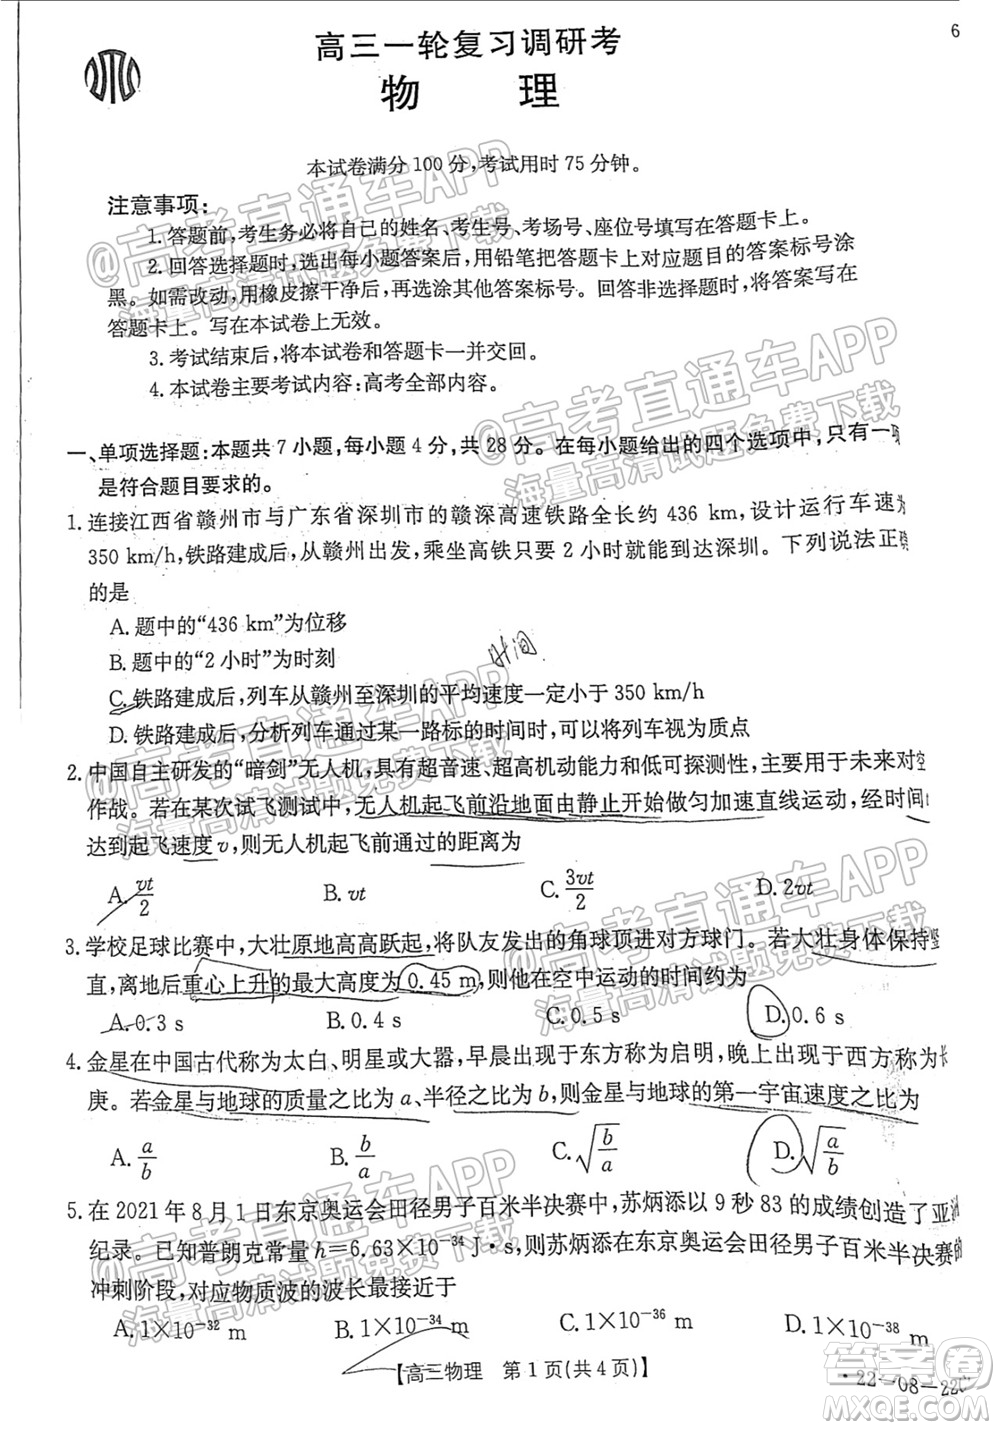 6
高三一轮复习调研考
物 理
本试卷满分100分,考试用时75分钟。
注意事项:
1.答题前,考生务必将自己的姓名、考生号、考场号、座位号填写在答题卡上。
2.回答选择题时,选出每小题答案后,用铅笔把答题卡上对应题目的答案标号涂
黑。如需改动,用橡皮擦干净后,再选涂其他答案标号。回答非选择题时,将答案写在
答题卡上。写在本试卷上无效。
3.考试结束后,将本试卷和答题卡一并交回。
4.本试卷主要考试内容:高考全部内容。
一、单项选择题:本题共7小题,每小题4分,共28分。在每小题给出的四个选项中,只有一项
是符合题目要求的。
1.连接江西省赣州市与广东省深圳市的赣深高速铁路全长约436 km,设计运行车速为
350 km/h,铁路建成后,从赣州出发,乘坐高铁只要2小时就能到达深圳。下列说法正确
的是
A.题中的“436 km”为位移
B.题中的“2小时”为时刻
时间
C.铁路建成后,列车从赣州至深圳的平均速度一定小于350 km/h
D.铁路建成后,分析列车通过某一路标的时间时,可以将列车视为质点
2.中国自主研发的“暗剑”无人机,具有超音速、超高机动能力和低可探测性,主要用于未来对空
作战。若在某次试飞测试中,无人机起飞前沿地面由静止开始做匀加速直线运动,经时间t
达到起飞速度v,则无人机起飞前通过的距离为
A.vt/2 B.vt C.3vt/2 D.2vt
3.学校足球比赛中,大壮原地高高跃起,将队友发出的角球顶进对方球门。若大壮身体保持竖
直,离地后重心上升的最大高度为0.45 m,则他在空中运动的时间约为
A.0.3 s B.0.4 s C.0.5 s D.0.6 s
4.金星在中国古代称为太白、明星或大嚣,早晨出现于东方称为启明,晚上出现于西方称为长
庚。若金星与地球的质量之比为a、半径之比为b,则金星与地球的第一宇宙速度之比为
A.a/b B.b/a C.√(b/a) D.√(a/b)
5.在2021年8月1日东京奥运会田径男子百米半决赛中,苏炳添以9秒83的成绩创造了亚洲
纪录。已知普朗克常量h=6.63×10⁻³⁴ J·s,则苏炳添在东京奥运会田径男子百米半决赛的
冲刺阶段,对应物质波的波长最接近于
A.1×10⁻³² m B.1×10⁻³⁴ m C.1×10⁻³⁶ m D.1×10⁻³⁸ m
【高三物理 第1页(共4页)】
·22-08-22C
@高考直通车APP
海量高清试题免费下载
@高考直通车APP
海量高清试题免费下载
@高考直通车APP
海量高清试题免费下载
@高考直通车APP
海量高清试题免费下载
@高考直通车APP
海量高清试题免费下载
答案圈
MXQE.COM